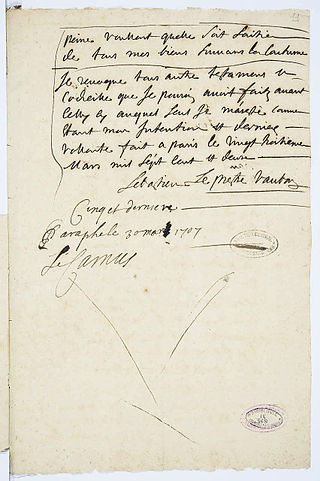 peine voullant quelle soit saisie
de tous mes biens suivans la coutume
Je revoque tous autre testamens et
Codicille que je pourois avoir fait avant
celluy cy auquel seul je m'areste comme
étant mon intention et derniere
volonté fait a paris le vingt troisieme
Mars mil sept cent et deux
Sebastien Le prestre vauban
Cinq et derniere
Paraphé le 30 mars 1707
Le Camus